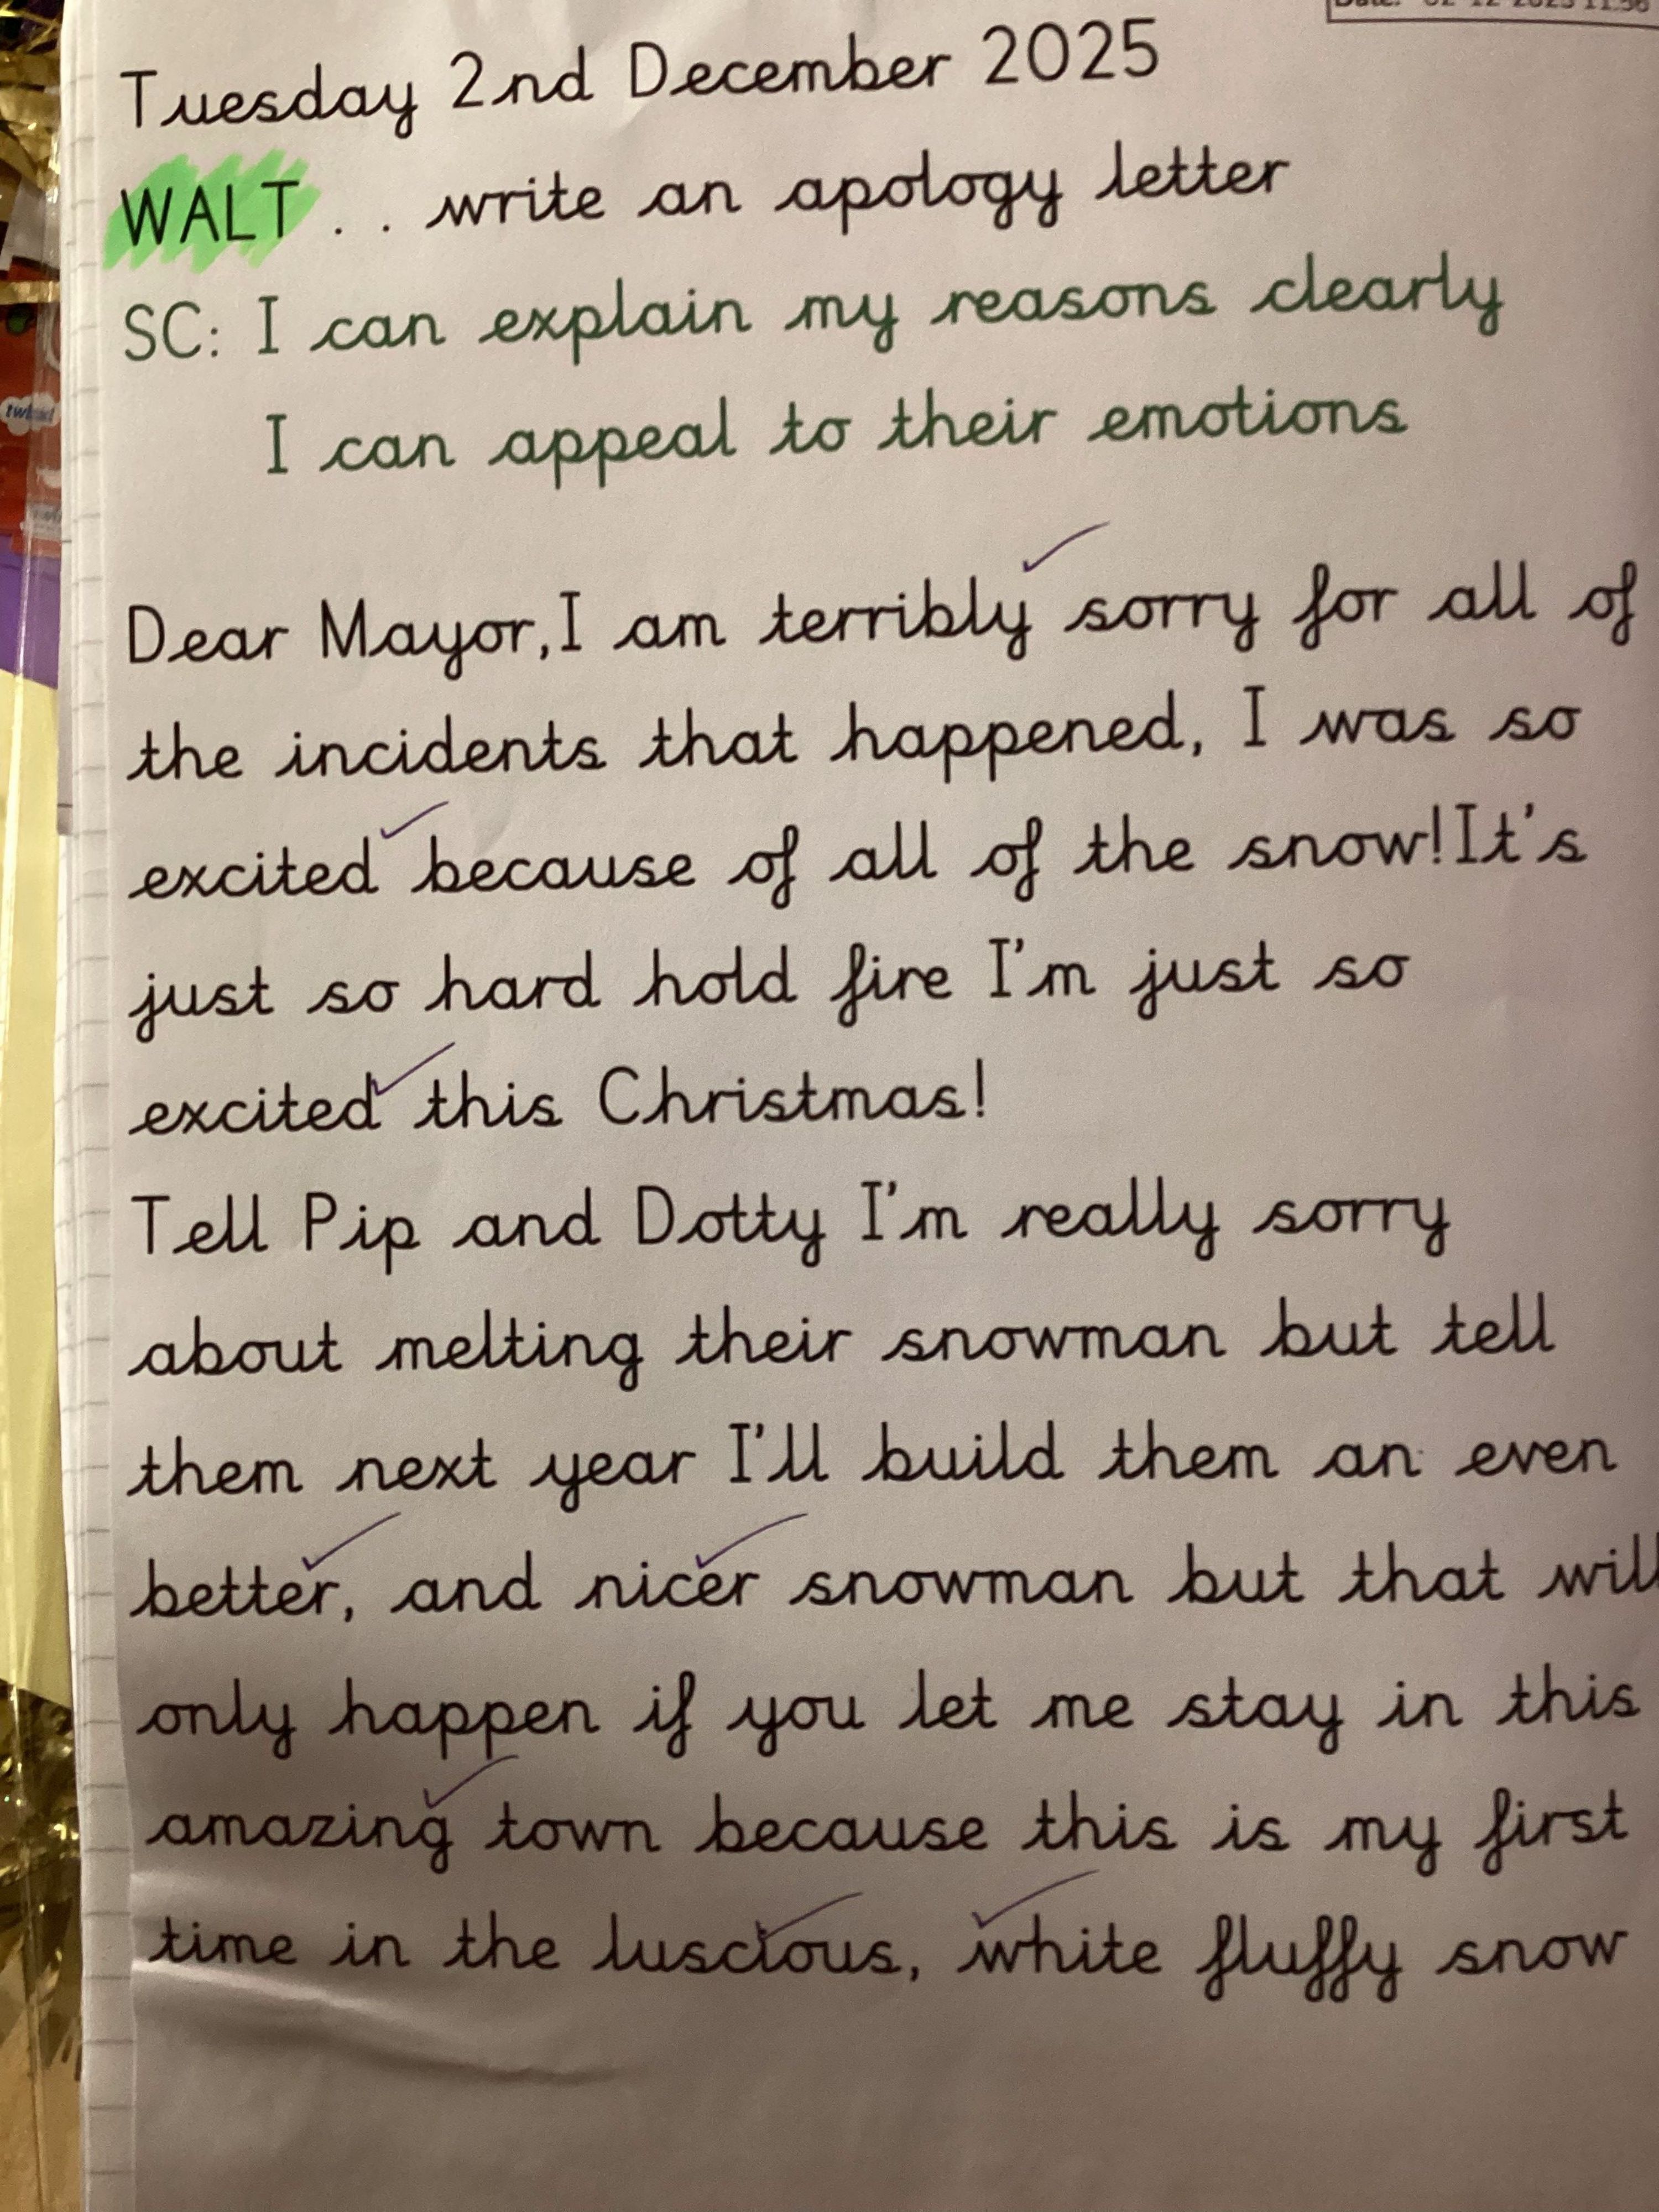 Date: 02-12-2025 11:56
Tuesday 2nd December 2025
WALT . . write an apology letter
SC: I can explain my reasons clearly
I can appeal to their emotions
Dear Mayor,I am terribly sorry for all of
the incidents that happened, I was so
excited because of all of the snow!It's
just so hard hold fire I'm just so
excited this Christmas!
Tell Pip and Dotty I'm really sorry
about melting their snowman but tell
them next year I'll build them an even
better, and nicer snowman but that will
only happen if you let me stay in this
amazing town because this is my first
time in the luscious, white fluffy snow